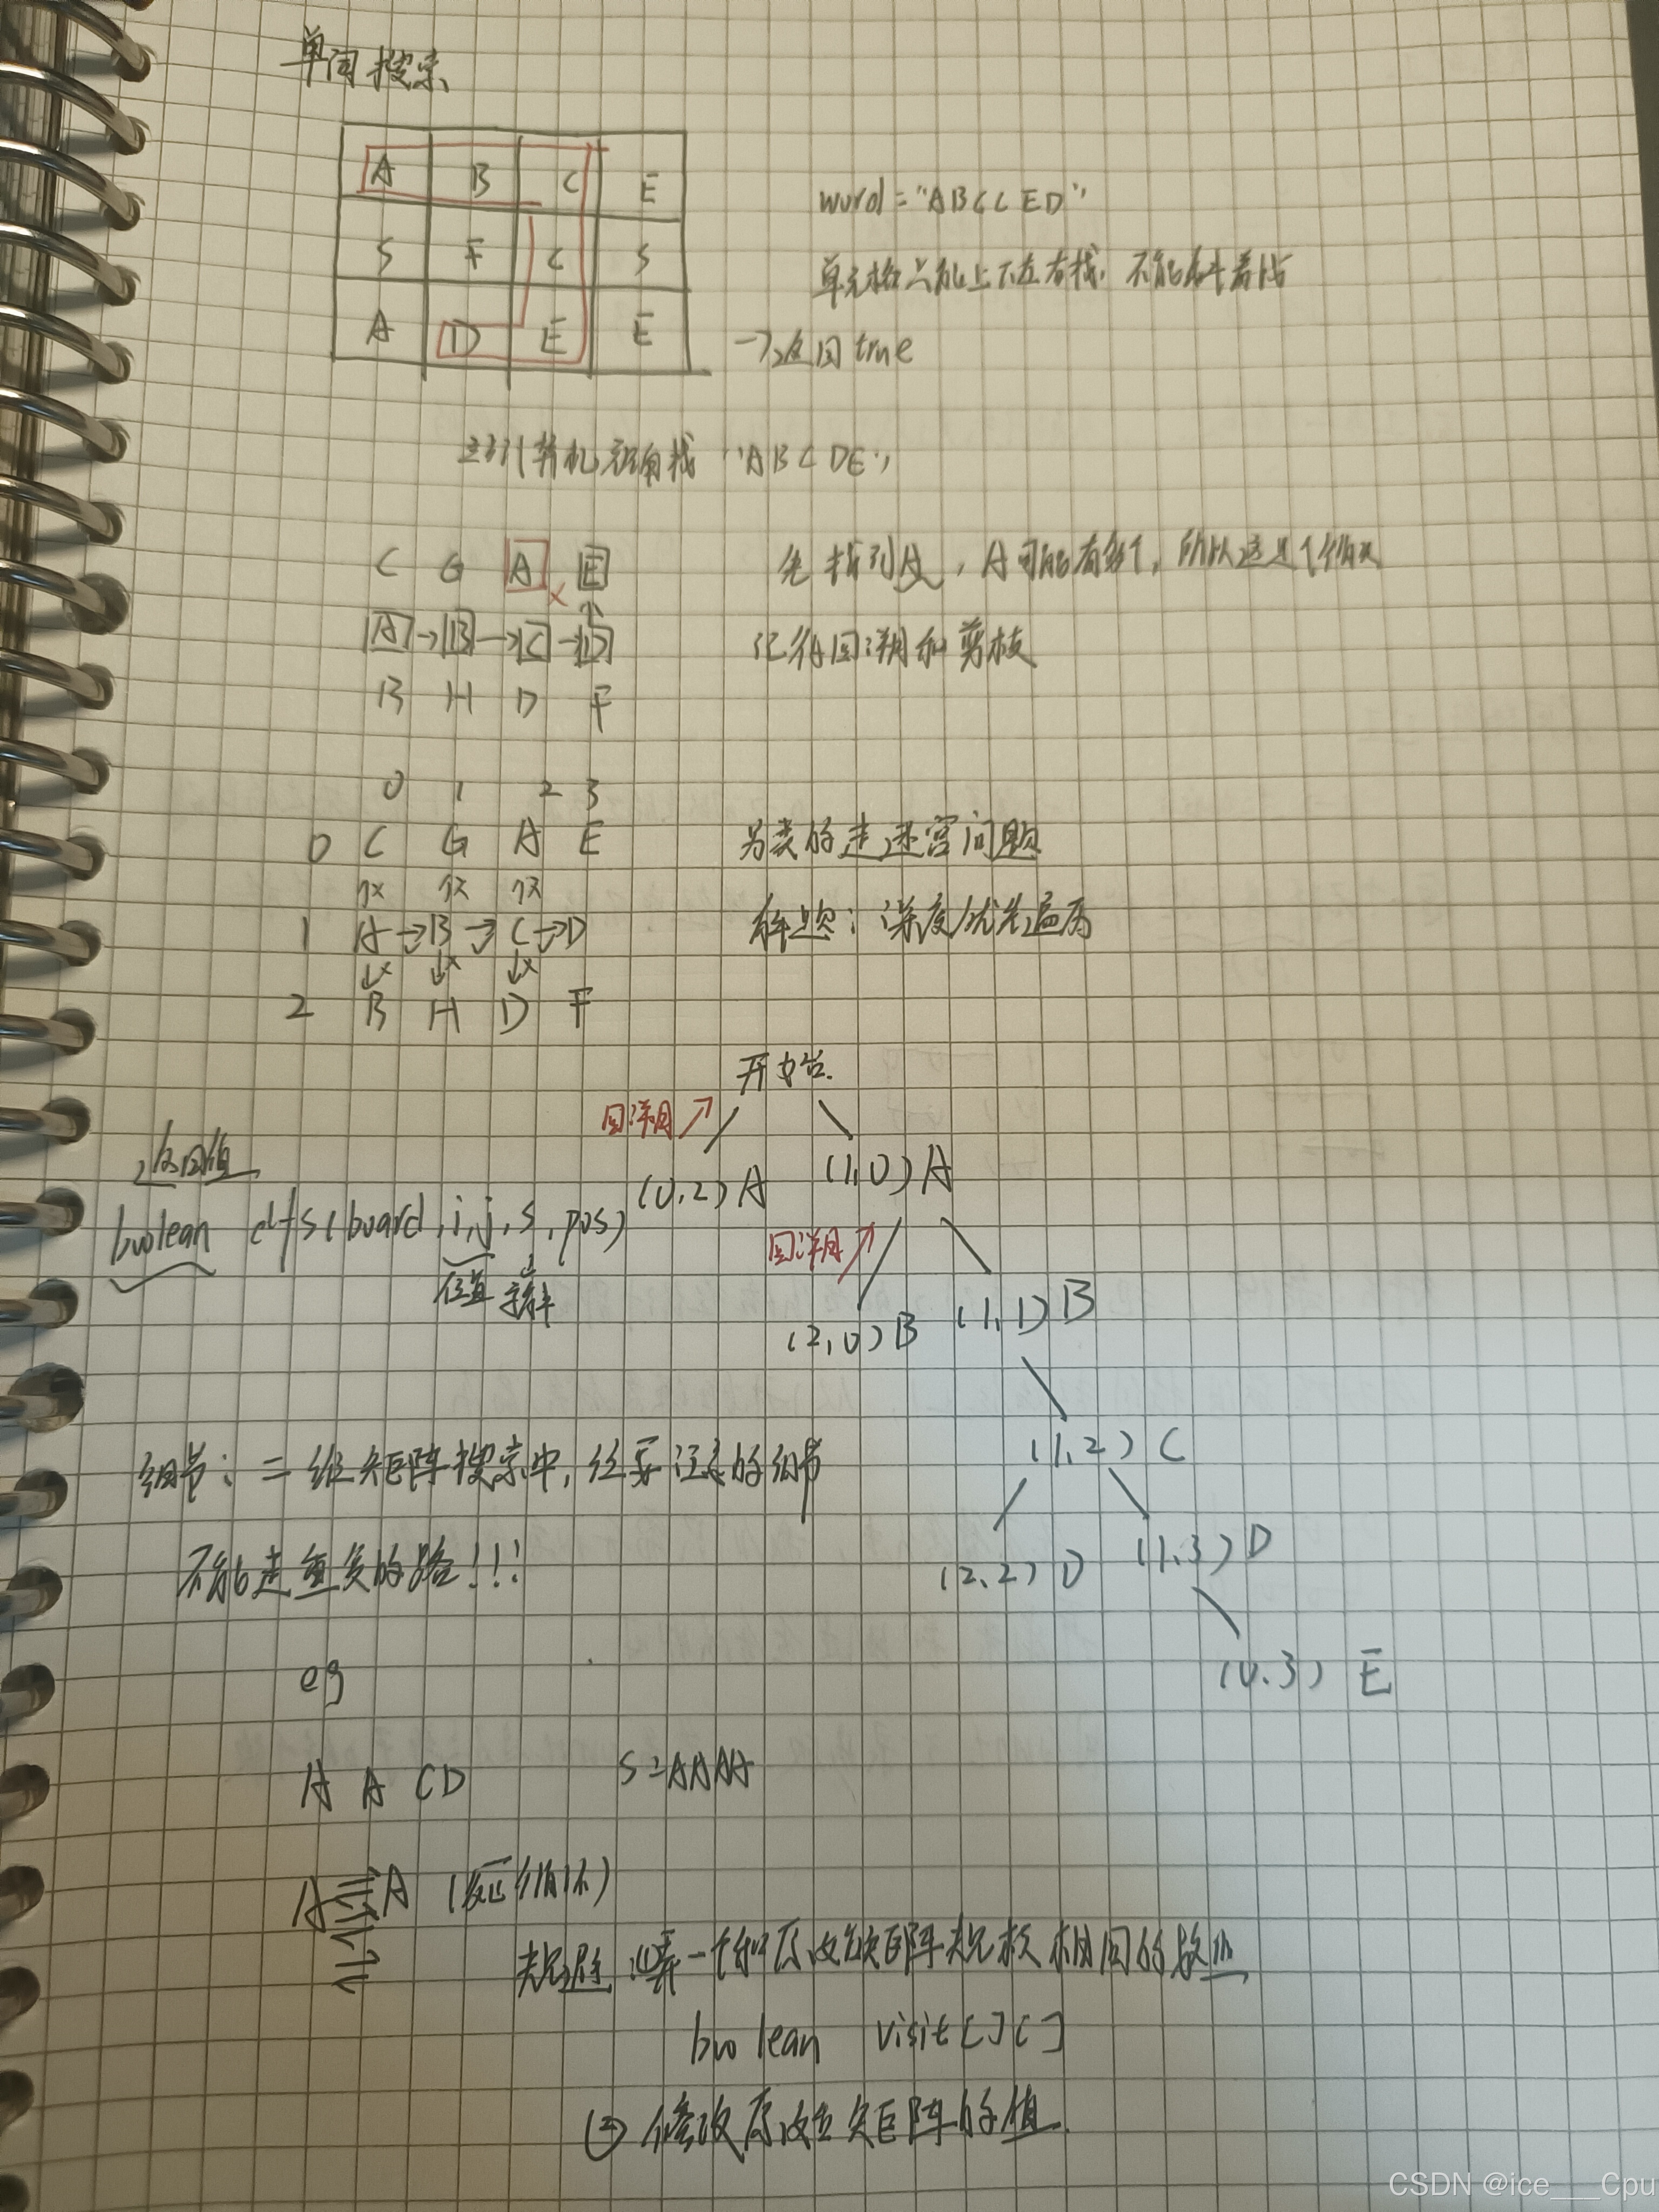 单词搜索
A B C E
word="ABCCED"
S F C S
单元格只能上下左右找,不能斜着找
A D E E
→返回true
站在计算机视角找 "ABCDE"
C G A × E
先找到A,A可能有多个,所以这是个循环
A→B→C→D
记得回溯和剪枝
B H D F
0 1 2 3
0 C G A E
另类的走迷宫问题
↑× ↑× ↑×
1 A→B→C→D
解题:深度优先遍历
↓× ↓× ↓×
2 B H D F
开始
回溯
返回值
(0,2)A (1,0)A
boolean dfs(board,i,j,s,pos)
回溯
位置 字符串
(2,0)B (1,1)B
(1,2)C
细节:二维矩阵搜索中,经要注意的细节
(2,2)D (1,3)D
不能走重复的路!!!
(0,3) E
eg
A A C D s=AAAA
A A (死循环)
规避 ①弄一个和原始矩阵规模相同的数组
boolean visit[][]
② 修改原始矩阵的值
CSDN @ice___Cpu